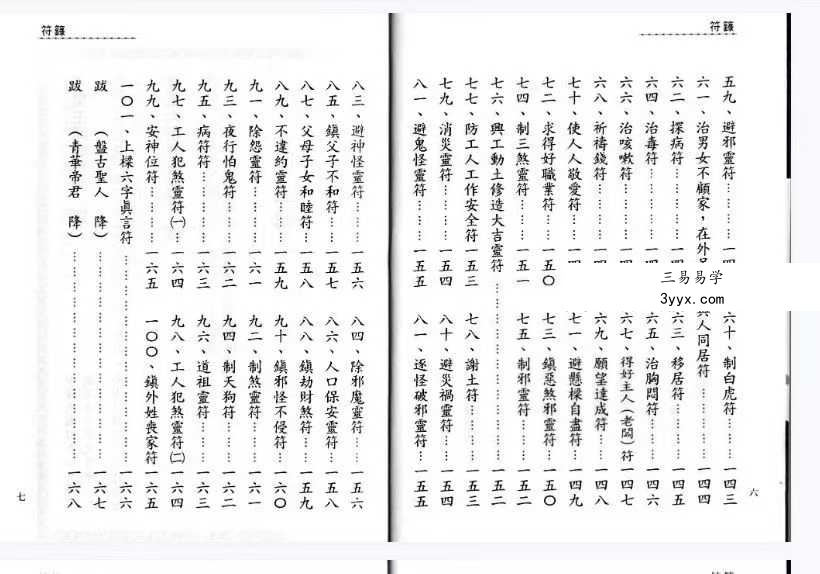 符籙
五九、避邪靈符………一四
六十、制白虎符………一四三
六一、治男女不顧家，在外
人同居符………一四四
六二、探病符………
六三、移居符………一四五
六四、治毒符………
六五、治胸悶符………一四六
六六、治咳嗽符………
六七、得好主人（老闆）符 一四七
六八、祈禱錢符………
六九、願望達成符………一四八
七十、使人人敬愛符………
七一、避懸樑自盡符………一四九
七二、求得好職業符………一五〇
七三、鎮惡煞邪靈符………一五〇
七四、制三煞靈符………一五一
七五、制邪靈符………一五二
七六、興工動土修造大吉靈符………一五二
七七、防工人工作安全符…一五三
七八、謝土符………一五三
七九、消災靈符………一五四
八十、避災禍靈符………一五四
八一、避鬼怪靈符………一五五
八一、逐怪破邪靈符………一五五
六
三易易学
3yyx.com
符籙
八三、避神怪靈符………一五六
八四、除邪魔靈符………一五六
八五、鎮父子不和符………一五七
八六、人口保安靈符………一五八
八七、父母子女和睦符…一五八
八八、鎮劫財煞符………一五九
八九、不違約靈符………一五九
九十、鎮邪怪不侵符………一六〇
九一、除怨靈符………一六一
九二、制煞靈符………一六一
九三、夜行怕鬼符………一六二
九四、制天狗符………一六二
九五、病符符………一六三
九六、道祖靈符………一六三
九七、工人犯煞靈符㈠…一六四
九八、工人犯煞靈符㈡…一六四
九九、安神位符………一六五
一〇〇、鎮外姓喪家符 一六五
一〇一、上樑六字眞言符………一六六
跋 （盤古聖人 降）………一六七
跋 （青華帝君 降）………一六八
七